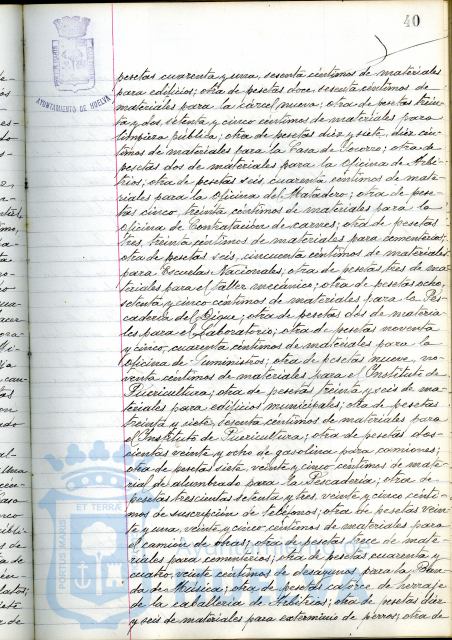 40
AYUNTAMIENTO DE HUELVA
pesetas cuarenta y una, sesenta céntimos de materiales
para edificios; otra de pesetas doce, sesenta céntimos de
materiales para la cárcel nueva; otra de pesetas trein-
ta y dos, setenta y cinco céntimos de materiales para
limpieza pública; otra de pesetas diez y siete, diez cén-
timos de materiales para la Casa de Socorro; otra de
pesetas dos de materiales para la Oficina de Arbi-
trios; otra de pesetas seis, cuarenta céntimos de mate-
riales para la Oficina del Matadero; otra de pese-
tas cinco, treinta céntimos de materiales para la
oficina de Contratación de carnes; otra de pesetas
tres, treinta céntimos de materiales para cementerios;
otra de pesetas seis, cincuenta céntimos de materiales
para Escuelas Nacionales; otra de pesetas tres de ma-
teriales para el taller mecánico; otra de pesetas ocho,
setenta y cinco céntimos de materiales para la Pes-
cadería del Dique; otra de pesetas dos de materia-
les para el Laboratorio; otra de pesetas noventa
y cinco, cuarenta céntimos de materiales para la
oficina de Suministros; otra de pesetas nueve, no-
venta céntimos de materiales para el Instituto de
Puericultura; otra de pesetas treinta y seis de ma-
teriales para edificios municipales; otra de pesetas
treinta y siete, sesenta céntimos de materiales para
el Instituto de Puericultura; otra de pesetas dos-
cientas veinte y ocho de gasolina para camiones;
otra de pesetas siete, veinte y cinco céntimos de mate-
rial de alumbrado para la Pescadería; otra de
pesetas trescientas setenta y tres, veinte y cinco cénti-
mos de suscripción de teléfonos; otra de pesetas vein-
te y una, veinte y cinco céntimos de materiales para
el camión de obras; otra de pesetas trece de mate-
riales para cementerios; otra de pesetas cuarenta y
cuatro, veinte céntimos de desayunos para la Ban-
da de Música; otra de pesetas catorce de herraje
de la caballería de Arbitrios; otra de pesetas diez
y seis de materiales para exterminio de perros; otra de
PORTUS MARIS ET TERRÆ